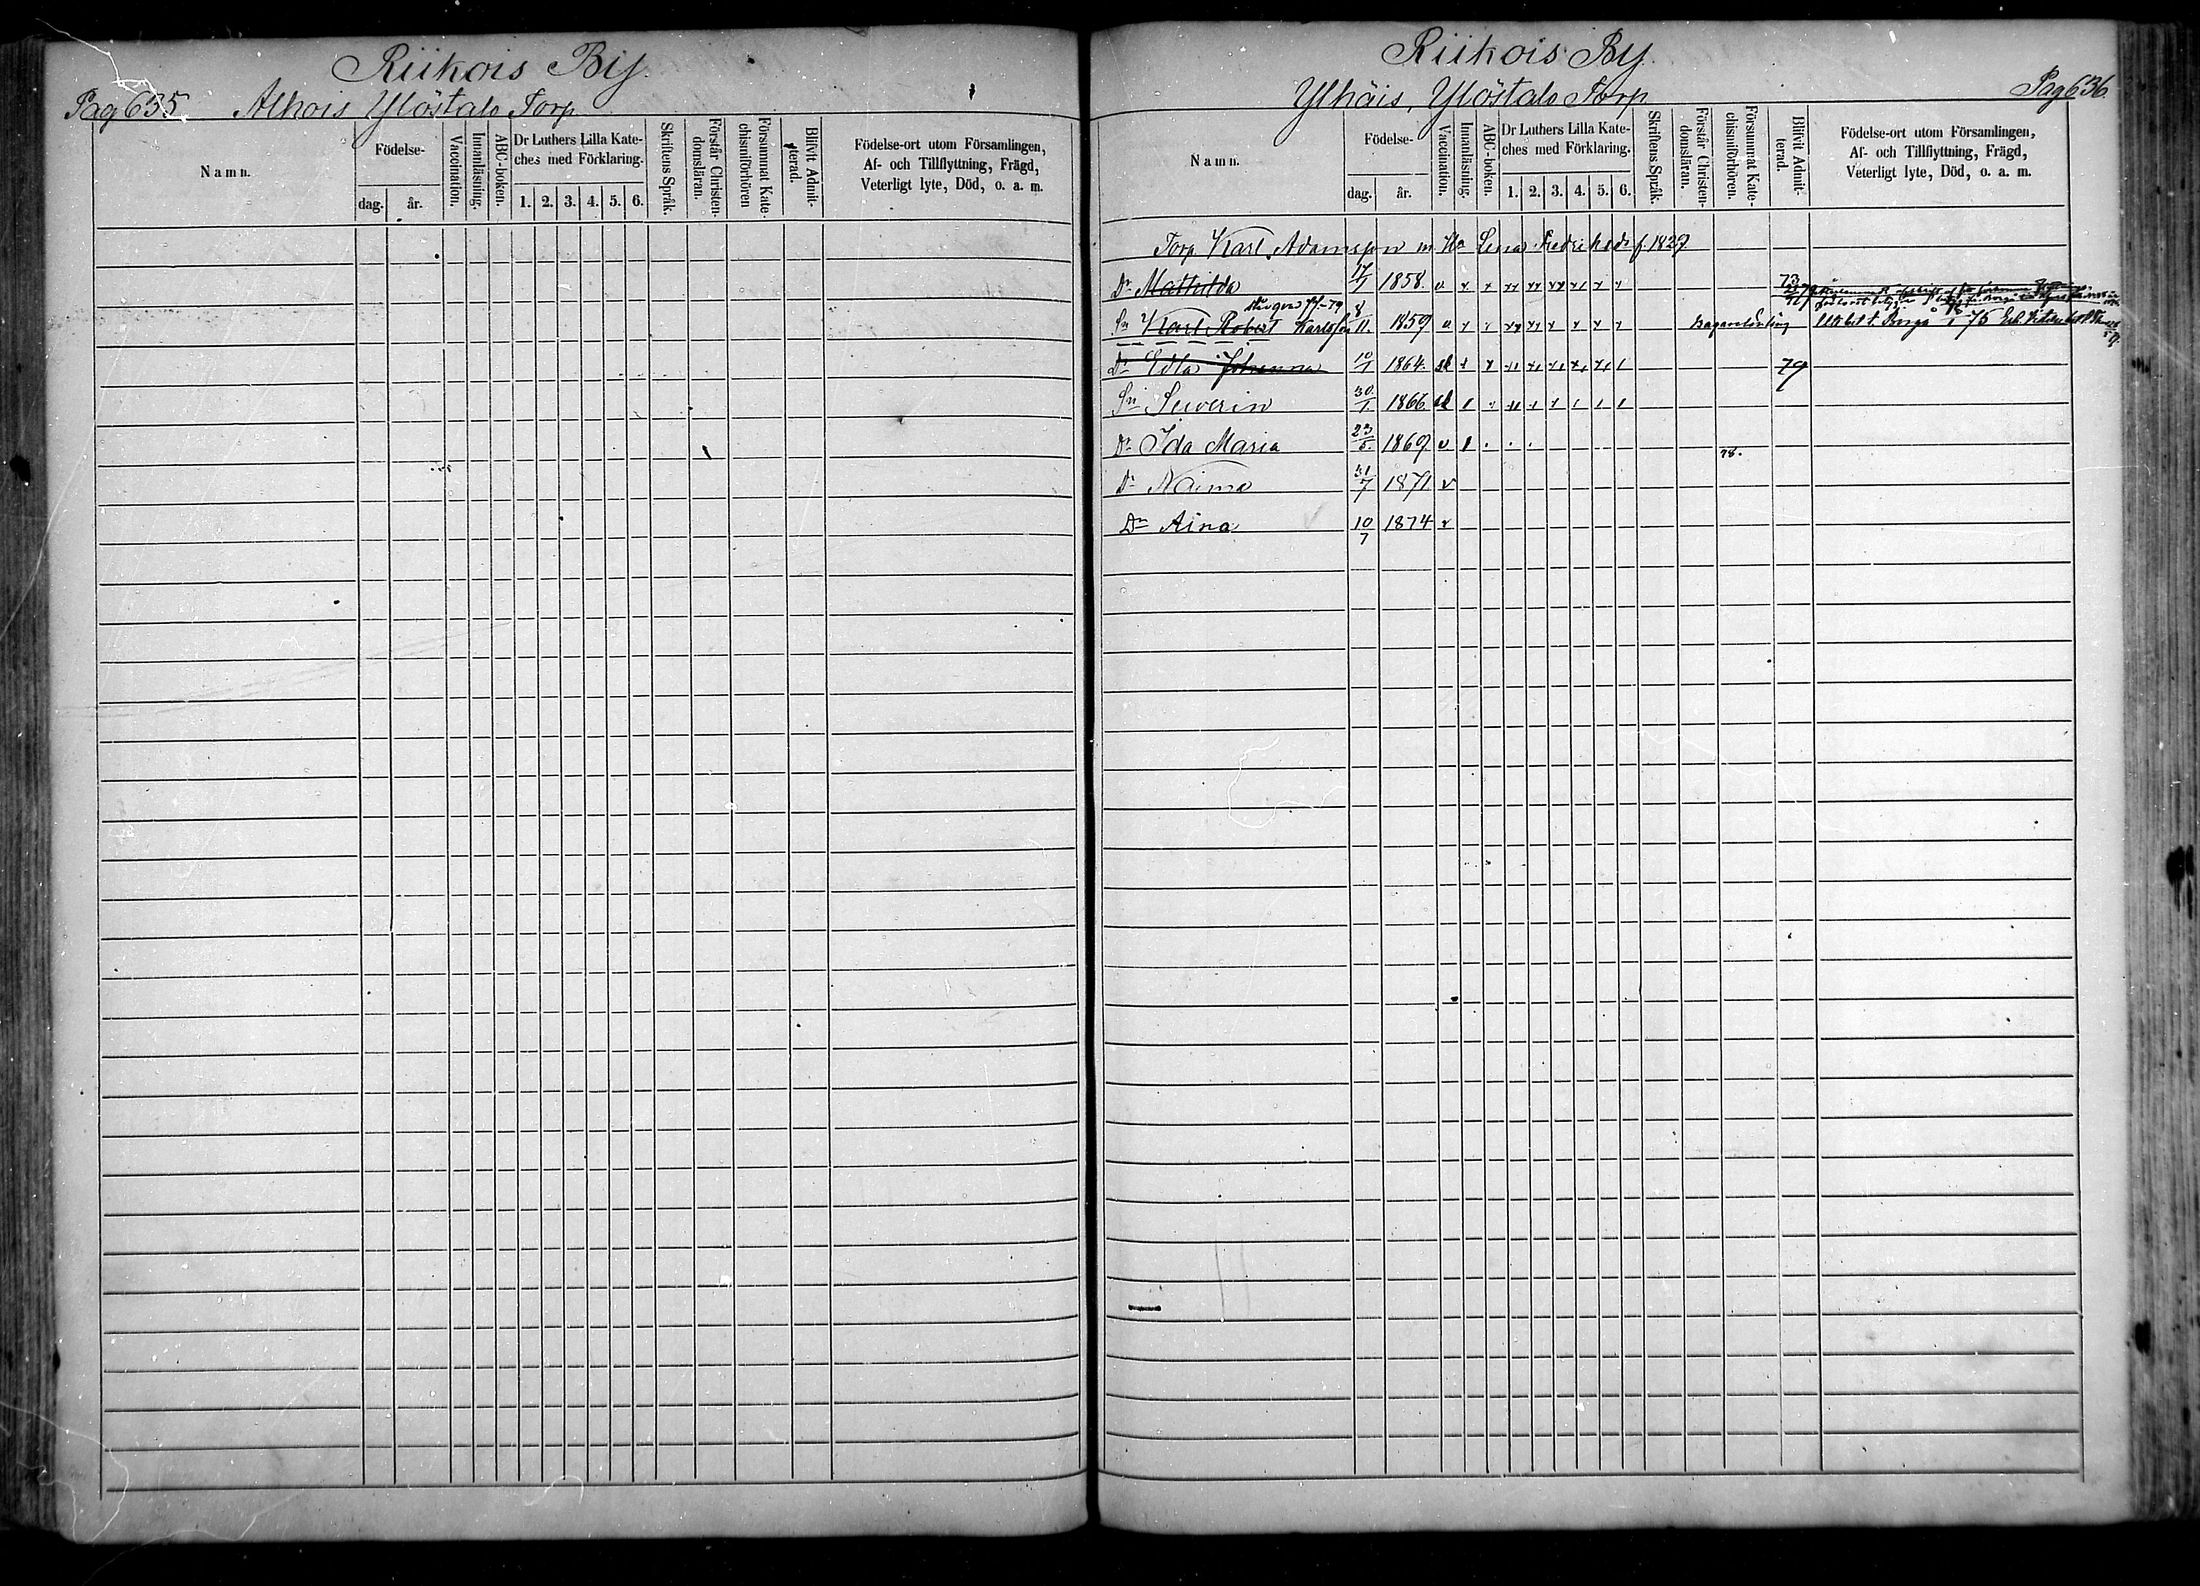 Riikois By.
Pag 635. Alhois Ylöstalo Torp
Namn.
Födelse-
dag. år.
Vaccination.
Innanläsning.
ABC-boken.
Dr Luthers Lilla Kate-
ches med Förklaring.
1. 2. 3. 4. 5. 6.
Skriftens Språk.
Förstår Christen-
domsläran.
Försummat Kate-
chismiförhören
Blifvit Admit-
terad.
Födelse-ort utom Församlingen,
Af- och Tillflyttning, Frägd,
Veterligt lyte, Död, o. a. m.
Riikois By.
Ylhäis, Ylöstalo Torp
Pag 636.
Namn.
Födelse-
dag. år.
Vaccination.
Innanläsning.
ABC-boken.
Dr Luthers Lilla Kate-
ches med Förklaring.
1. 2. 3. 4. 5. 6.
Skriftens Språk.
Förstår Christen-
domsläran.
Försummat Kate-
chismiförhören.
Blifvit Admit-
terad.
Födelse-ort utom Församlingen,
Af- och Tillflyttning, Frägd,
Veterligt lyte, Död, o. a. m.
Torp. Karl Adamsson m. Ha Lena Fredriksdr f. 1827
Dr Mathilda 17/1 1858. v x
73
Sn Karl Robert Karlsson 8/11 1859 v x
t. Borgå 75
Dr Edla Johanna 10/1 1864. 79
Sn Severin 30/1 1866.
Dr Ida Maria 23/5. 1869. v. 78.
Dr Naima 31/7 1871 v
Dr Aina 10/7 1874 v